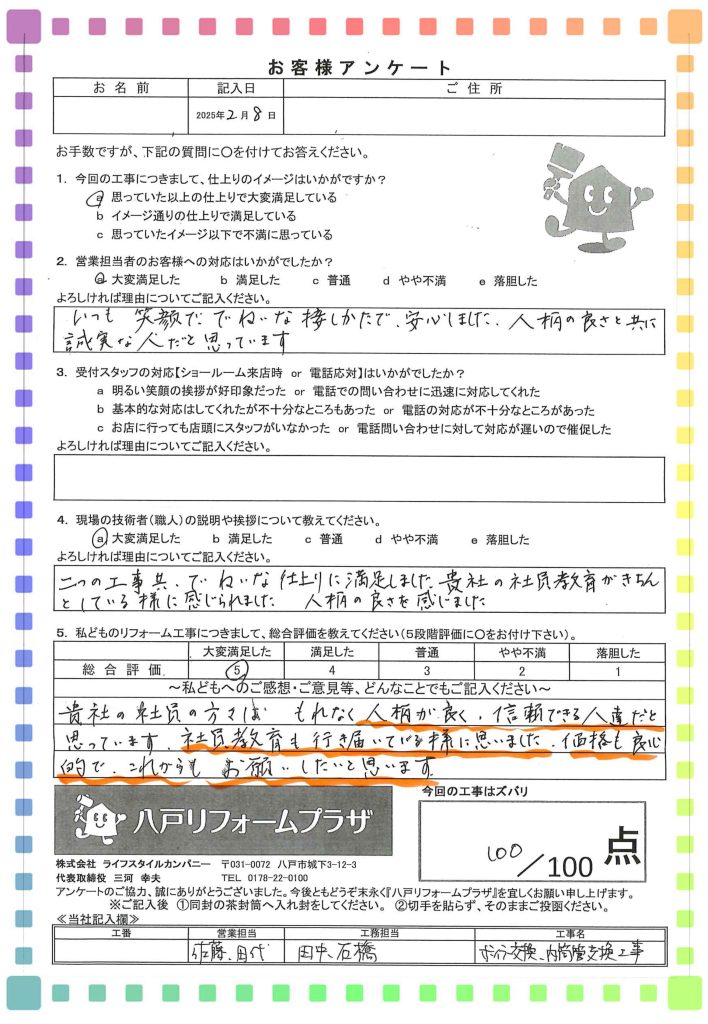 お客様アンケート
お名前 記入日 ご住所
2025年2月8日
お手数ですが、下記の質問に○を付けてお答えください。
1. 今回の工事につきまして、仕上りのイメージはいかがですか？
a 思っていた以上の仕上りで大変満足している
b イメージ通りの仕上りで満足している
c 思っていたイメージ以下で不満に思っている
2. 営業担当者のお客様への対応はいかがでしたか？
a 大変満足した b 満足した c 普通 d やや不満 e 落胆した
よろしければ理由についてご記入ください。
いつも 笑顔で、でねいな接しかたで、安心しました、人柄の良さと共に
誠実な人だと思っています
3. 受付スタッフの対応【ショールーム来店時 or 電話応対】はいかがでしたか？
a 明るい笑顔の挨拶が好印象だった or 電話での問い合わせに迅速に対応してくれた
b 基本的な対応はしてくれたが不十分なところもあった or 電話の対応が不十分なところがあった
c お店に行っても店頭にスタッフがいなかった or 電話問い合わせに対して対応が遅いので催促した
よろしければ理由についてご記入ください。
4. 現場の技術者(職人)の説明や挨拶について教えてください。
a 大変満足した b 満足した c 普通 d やや不満 e 落胆した
よろしければ理由についてご記入ください。
二つの工事共、でねいな仕上りに満足しました。貴社の社員教育がきちん
としている様に感じられました 人柄の良さを感じました
5. 私どものリフォーム工事につきまして、総合評価を教えてください(5段階評価に○をお付け下さい)。
大変満足した 満足した 普通 やや不満 落胆した
総合評価 5 4 3 2 1
～私どもへのご感想・ご意見等、どんなことでもご記入ください～
貴社の社員の方々は もれなく人柄が良く、信頼できる人達だと
思っています。社員教育も行き届いている様に思いました。価格も良心
的で、これからも お願いしたいと思います。
八戸リフォームプラザ
今回の工事はズバリ
100/100 点
株式会社 ライフスタイルカンパニー 〒031-0072 八戸市城下3-12-3
代表取締役 三河 幸夫 TEL 0178-22-0100
アンケートのご協力、誠にありがとうございました。今後ともどうぞ末永く『八戸リフォームプラザ』を宜しくお願い申し上げます。
※ご記入後 ①同封の茶封筒へ入れ封をしてください。 ②切手を貼らず、そのままご投函ください。
≪当社記入欄≫
工番 営業担当 工務担当 工事名
佐藤、田代 田中、石橋 ボイラ交換、内筒管交換工事